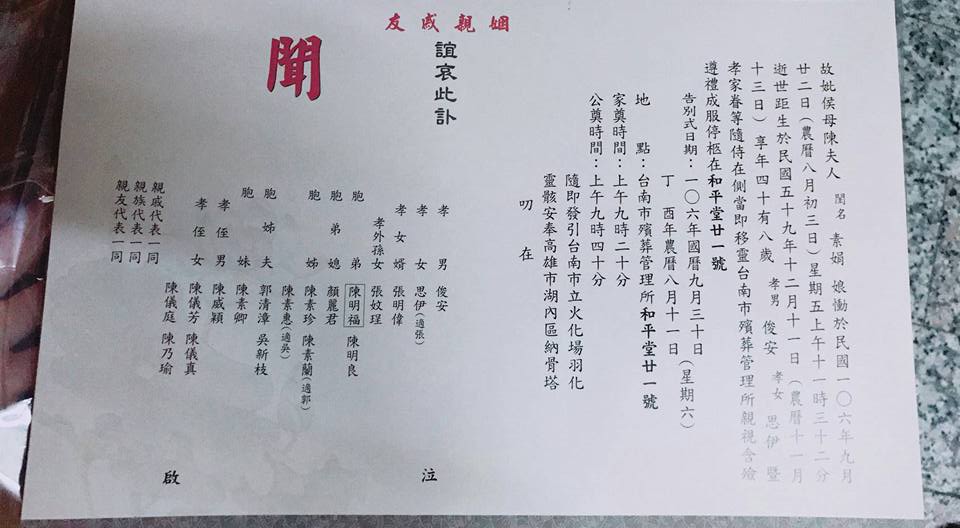 故妣侯母陳夫人 閨名 素娟 娘慟於民國一〇六年九月
廿二日（農曆八月初三日）星期五上午十一時三十二分
逝世距生於民國五十九年十二月十一日（農曆十一月
十三日）享年四十有八歲 孝男 俊安 孝女 思伊 暨
孝家眷等隨侍在側當即移靈台南市殯葬管理所親視含殮
遵禮成服停柩在和平堂廿一號
告別式日期：一〇六年國曆九月三十日（星期六）
丁酉年農曆八月十一日
地點：台南市殯葬管理所和平堂廿一號
家奠時間：上午九時二十分
公奠時間：上午九時四十分
隨即發引台南市立火化場羽化
靈骸安奉高雄市湖內區納骨塔
叨在
姻親戚友
誼哀此訃
聞
孝男 俊安
孝女 思伊(適張)
孝女婿 張明偉
孝外孫女 張妏珵
胞弟 陳明福 陳明良
胞弟媳 顏麗君
胞姊 陳素珍 陳素蘭(適郭)
陳素惠(適吳)
胞姊夫 郭清漳 吳新枝
胞妹 陳素卿
孝侄男 陳威穎
孝侄女 陳儀芳 陳儀真
陳儀庭 陳乃瑜
親戚代表一同
親族代表一同
親友代表一同
泣
啟